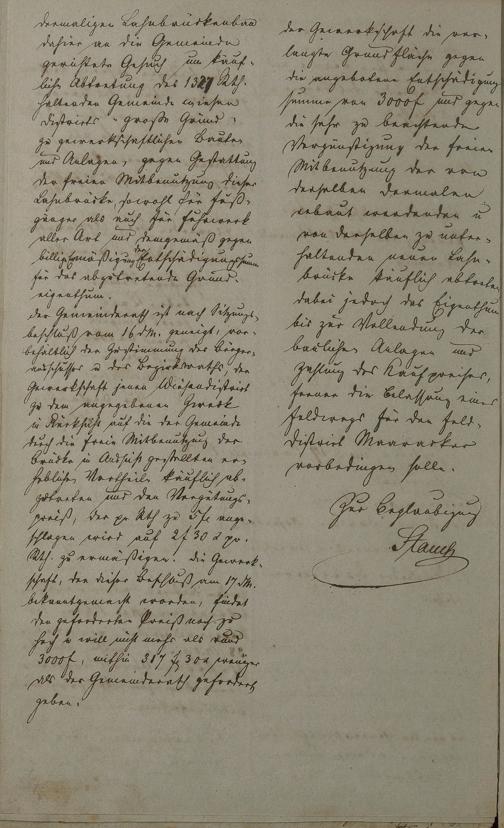 dermaligen Lahnbrückenbau
dahier an die Gemeinde
gerichtete Gesuch um käuf-
liche Abtretung des 1327 Rth.
haltenden Gemeindewiesen
Districts "große Grund"
zu gewerkschaftlichen Bauten
und Anlagen, gegen Gestattung
der freien Mitbenutzung dieser
Lahnbrücke, sowohl für Fuß-
gänger als auch für Fuhrwerk
aller Art und demgemäß gegen
Entschädigung
für das abzutretende Grund-
eigenthum.
Der Gemeinderath ist nach Sitzungs-
beschluß vom 16 dM. geneigt, vor-
behaltlich der Zustimmung des Bürger-
ausschusses u des Bezirksraths, der
Gewerkschaft jenen Wiesendistrict
zu dem angegebenen Zweck
u Rücksicht auf die der Gemeinde
durch die freie Mitbenutzung der
Brücke in Aussicht gestellten er-
heblichen Vortheile käuflich ab-
zutreten und den Vergütungs-
preiß, der pr Rth zu ange-
schlagen wird auf 2 f 30 x pr.
Rth. zu ermäßigen. Die Gewerk-
schaft, der dieser Beschluß am 17 dM.
bekanntgemacht worden, findet
den geforderten Preiß noch zu
hoch u will nicht mehr als rund
3000 f, mithin 317 f 30 x weniger
als der Gemeinderath gefordert
geben.
der Gewerkschaft die ver-
langte Grundfläche gegen
die angebotene Entschädigungs-
summe von 3000 f und gegen
die sehr zu beachtende
Vergünstigung der freien
Mitbenutzung der von
derselben dermalen
erbaut werdenden u
von derselben zu unter-
haltenden neuen Lahn-
brücke käuflich abtreten,
dabei jedoch das Eigenthum
bis zur Vollendung der
baulichen Anlagen und
Zahlung des Kaufpreises,
ferner die Belassung eines
Feldwegs für den Feld-
District
vorbedingen solle.
Zur Beglaubigung